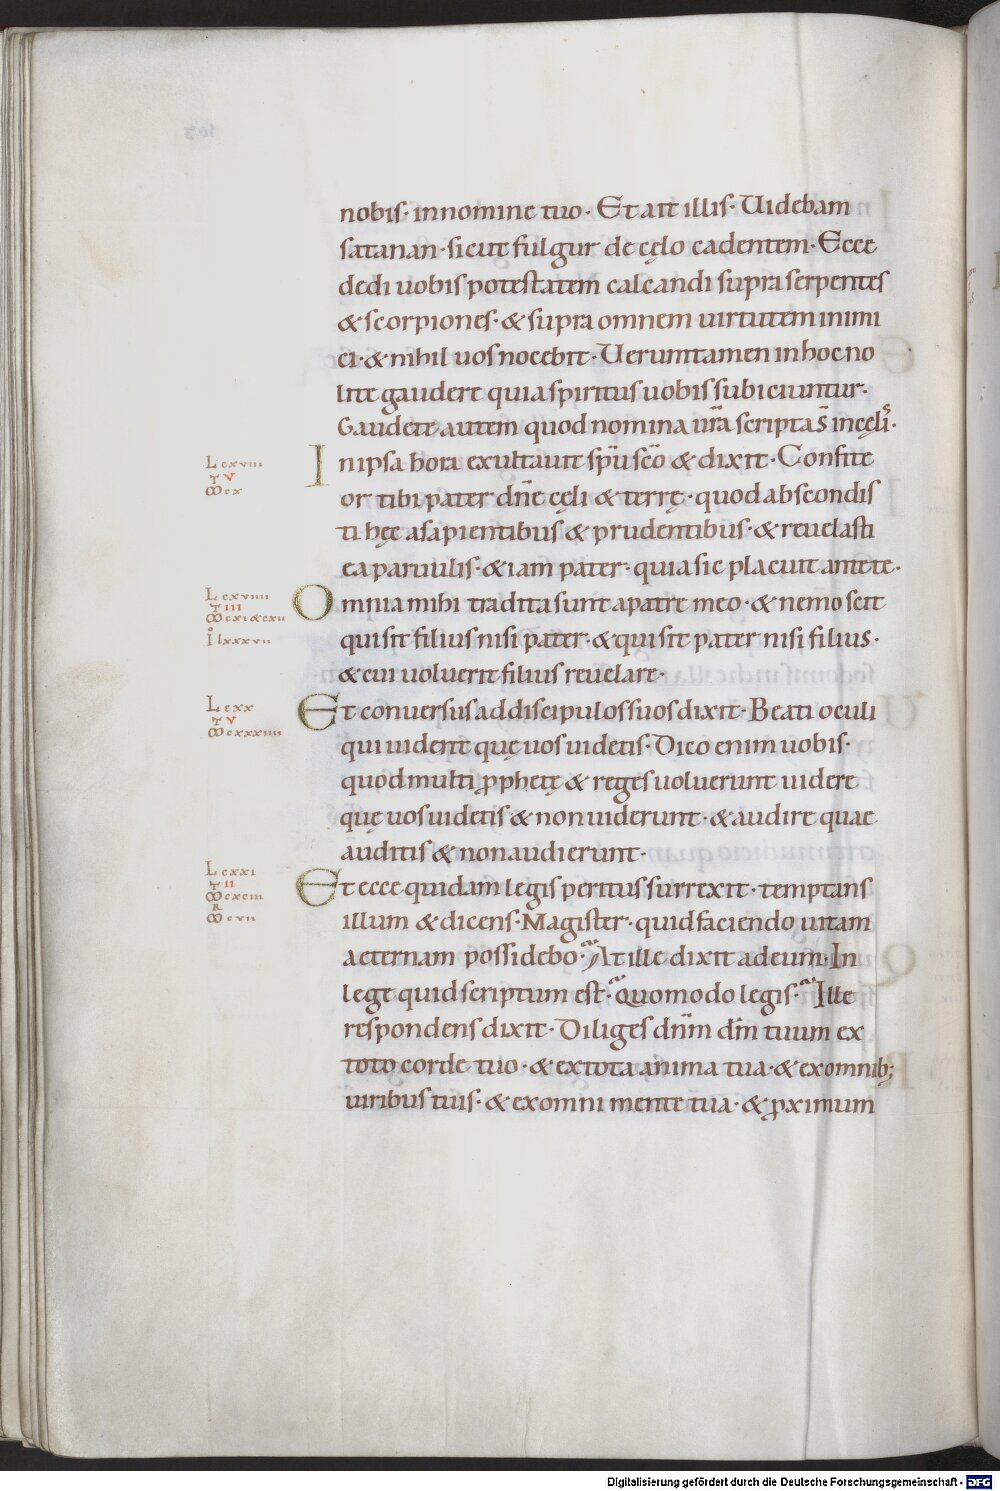 nobis· in nomine tuo· Et ait illis· Uidebam
satanan· sicut fulgur de cęlo cadentem· Ecce
dedi uobis potestatem calcandi supra serpentes
& scorpiones· & supra omnem uirtutem inimi
ci· & nihil uos nocebit· Ueruntamen in hoc no
lite gaudere quia spiritus uobis subiciuntur·
Gaudete autem quod nomina ur̄a scripta s̄ in cęlis·
L cxviiii
T V
In ipsa hora exultauit sp̄u sc̄o & dixit· Confite
or tibi pater dn̄e cęli & terrę· quod abscondis
ti hęc a sapientibus & prudentibus· & reuelasti
ea paruulis· & iam pater· quia sic placuit ante te·
T III
Omnia mihi tradita sunt a patre meo· & nemo scit
qui sit filius nisi pater· & qui sit pater nisi filius·
& cui uoluerit filius reuelare·
L cxx
T V
Et conuersus ad discipulos suos dixit· Beati oculi
qui uident quę uos uidetis· Dico enim uobis·
quod multi prophetę & reges uoluerunt uidere
quę uos uidetis & non uiderunt· & audire quae
auditis & non audierunt·
L cxxi
T II
Et ecce quidam legis peritus surrexit· temptans
illum & dicens· Magister· quid faciendo uitam
aeternam possidebo· At ille dixit ad eum· In
lege quid scriptum est· Quomodo legis· Ille
respondens dixit· Diliges dn̄m dm̄ tuum ex
toto corde tuo· & ex tota anima tua· & ex omnib;
uiribus tuis· & ex omni mente tua· & proximum
Digitalisierung gefördert durch die Deutsche Forschungsgemeinschaft - DFG